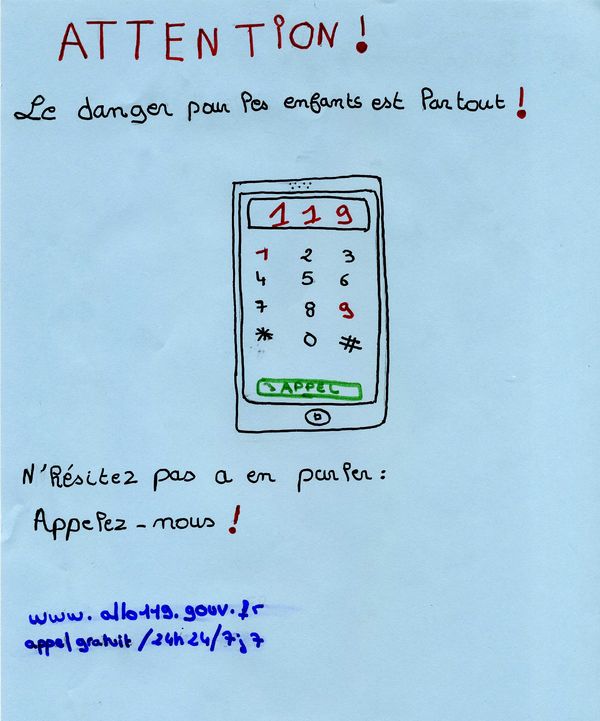 ATTENTiON !
Le danger pour les enfants est Partout !
119
1 2 3
4 5 6
7 8 9
* 0 #
> APPEL
N'Résitez pas a en parler :
Appelez-nous !
www.allo119.gouv.fr
appel gratuit / 24h24/7j7